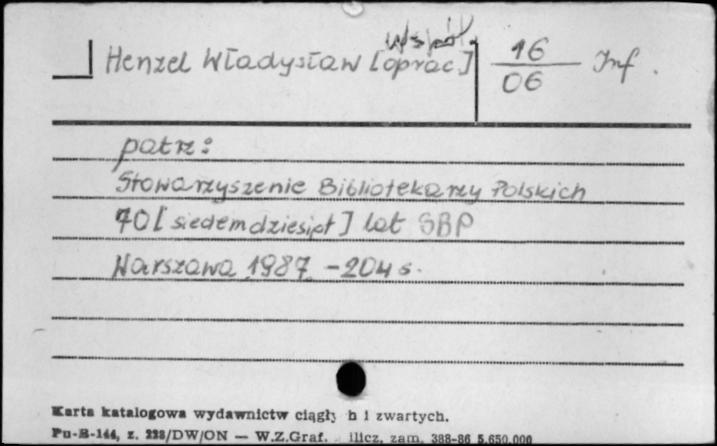 Współ.
Henzel Władysław [oprac] 16 Inf.
06
patrz:
Stowarzyszenie Bibliotekarzy Polskich
70 [siedemdziesiąt] lat SBP
Warszawa 1987 - 204 s.
Karta katalogowa wydawnictw ciągły h i zwartych.
Pu-B-144, z. 228/DW/ON — W.Z.Graf. zam. 388-86 5.650.000